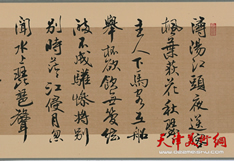 潯陽江頭夜送客
楓葉荻花秋瑟瑟
主人下馬客在船
舉酒欲飲無管弦
醉不成歡慘將別
別時茫茫江浸月忽
聞水上琵琶聲
天津美术网